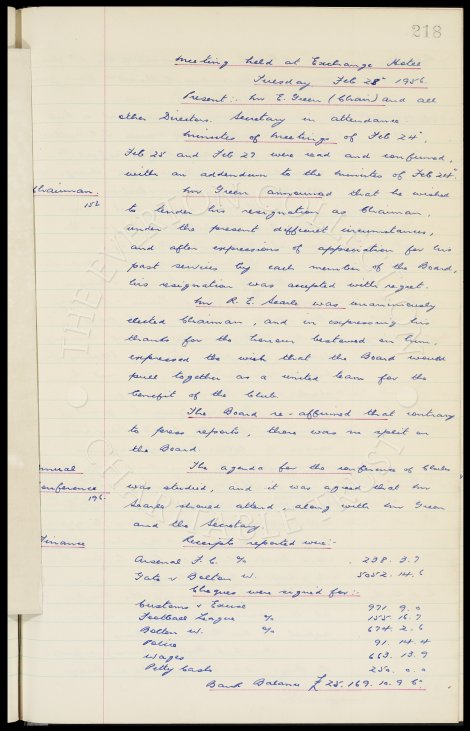 218
Meeting held at Exchange Hotel
Tuesday Feb 28th 1956.
Present:- Mr E. Green (Chair) and all
other Directors. Secretary in attendance.
Minutes of Meetings of Feb 24th,
Feb 25 and Feb 27 were read and confirmed,
with an addendum to the minutes of Feb 24th.
Chairman.
152
Mr Green announced that he wished
to tender his resignation as Chairman,
under the present difficult circumstances,
and after expressions of appreciation for his
past services by each member of the Board,
his resignation was accepted with regret.
Mr R. E. Searle was unanimously
elected Chairman, and in expressing his
thanks for the honour bestowed on him,
expressed the wish that the Board would
pull together as a united team for the
benefit of the Club.
The Board re-affirmed that contrary
to press reports, there was no split on
the Board.
Annual
Conference
196
The agenda for the conference of Clubs
was studied, and it was agreed that Mr
Searle should attend, along with Mr Green
and the Secretary.
Finance
Receipts reported were:-
Arsenal F.C. % 238. 3. 7
Gate v Bolton W. 5052. 14. 6
Cheques were signed for:-
Customs & Excise 971. 9. 0
Football League % 155. 16. 7
Bolton W. % 674. 2. 6
Police 91. 14. 4
Wages 663. 13. 9
Petty Cash 250. 0. 0
Bank Balance £25,169. 10. 9
THE EVERTON COLLECTION
CHARITABLE TRUST